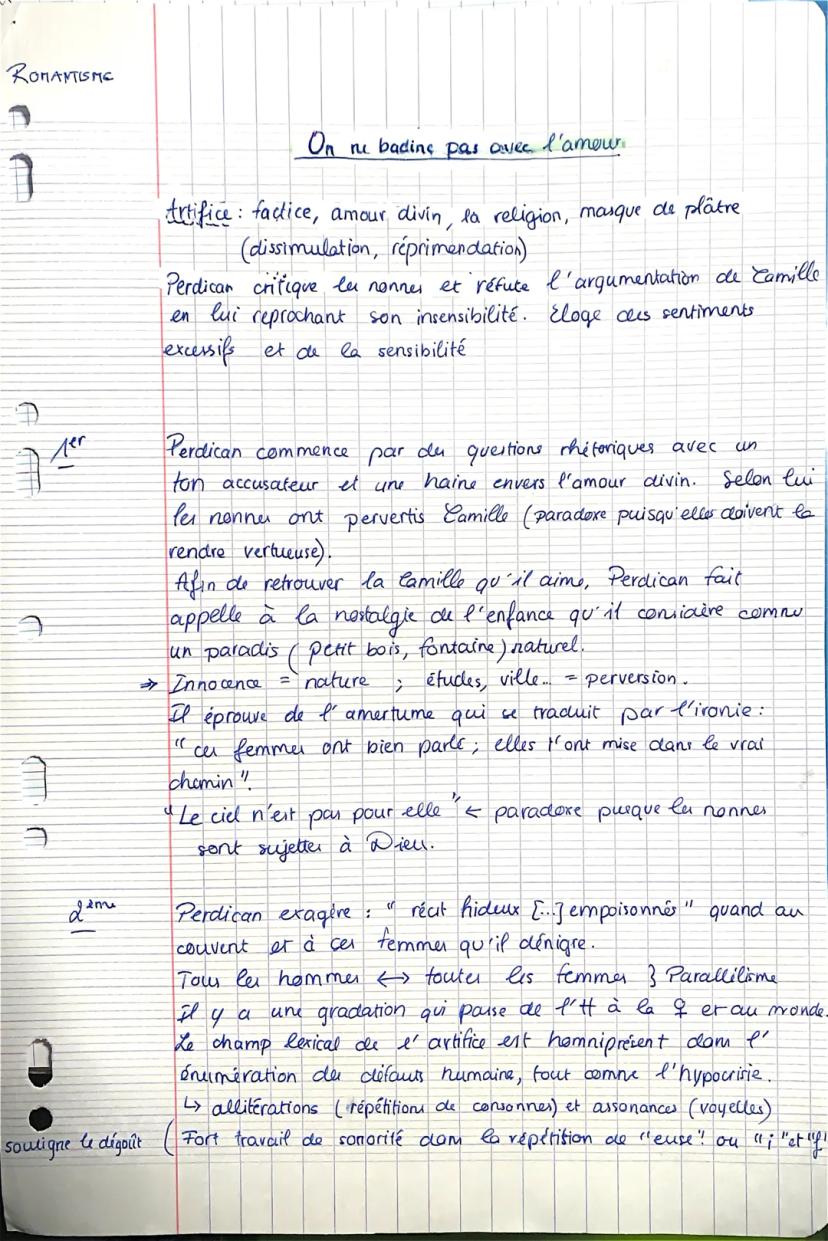 ROMANTISME
On ne badine pas avec l'amour.
Artifice : factice, amour divin, la religion, masque de plâtre
(dissimulation, réprimendation)
Perdican critique les nonnes et réfute l'argumentation de Camille
en lui reprochant son insensibilité. Éloge des sentiments
excessifs et de la sensibilité
1er
Perdican commence par des questions rhétoriques avec un
ton accusateur et une haine envers l'amour divin. Selon lui
les nonnes ont pervertis Camille (paradoxe puisqu'elles doivent la
rendre vertueuse).
Afin de retrouver la Camille qu'il aime, Perdican fait
appelle à la nostalgie de l'enfance qu'il considère comme
un paradis (petit bois, fontaine) naturel.
⇒ Innocence = nature ; études, ville... = perversion.
Il éprouve de l'amertume qui se traduit par l'ironie :
" ces femmes ont bien parlé ; elles t'ont mise dans le vrai
chemin ".
" Le ciel n'est pas pour elle " ← paradoxe puisque les nonnes
sont sujettes à Dieu.
2ème
Perdican exagère : " récit hideux [...] empoisonnés " quand au
couvent et à ces femmes qu'il dénigre.
Tous les hommes ↔ toutes les femmes } Parallilisme
Il y a une gradation qui passe de l'H à la ♀ et au monde.
Le champ lexical de l'artifice est homniprésent dans l'
énumération des défauts humains, tout comme l'hypocrisie.
↳ allitérations (répétitions de consonnes) et assonances (voyelles)
souligne le dégoût ( Fort travail de sonorité dans la répétition de "euse" ou "i" et "f"